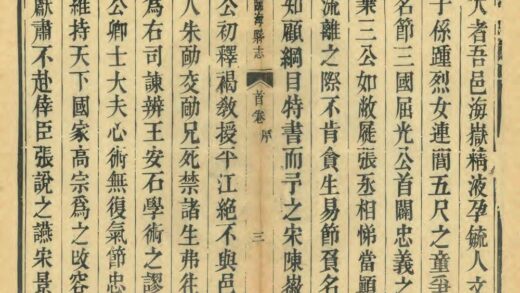 大者吾邑海嶽精液孕毓人文
子係踵烈女連閭五尺之童爭
名節三國屈光公首闢忠義之
乘三公如敝屣張丞相悌當顛
流離之際不肯貪生易節名
知顧綱目特書而予之宋陳
海縣志
首卷 序
三
公初釋褐教授平江絕不與邑
人朱勔交勔兄死禁諸生弗往
為右司諫辨王安石學術之謬
公卿士大夫心術無復氣節忠
維持天下國家高宗爲之改容
獻肅不赴倖臣張說之讌宋景